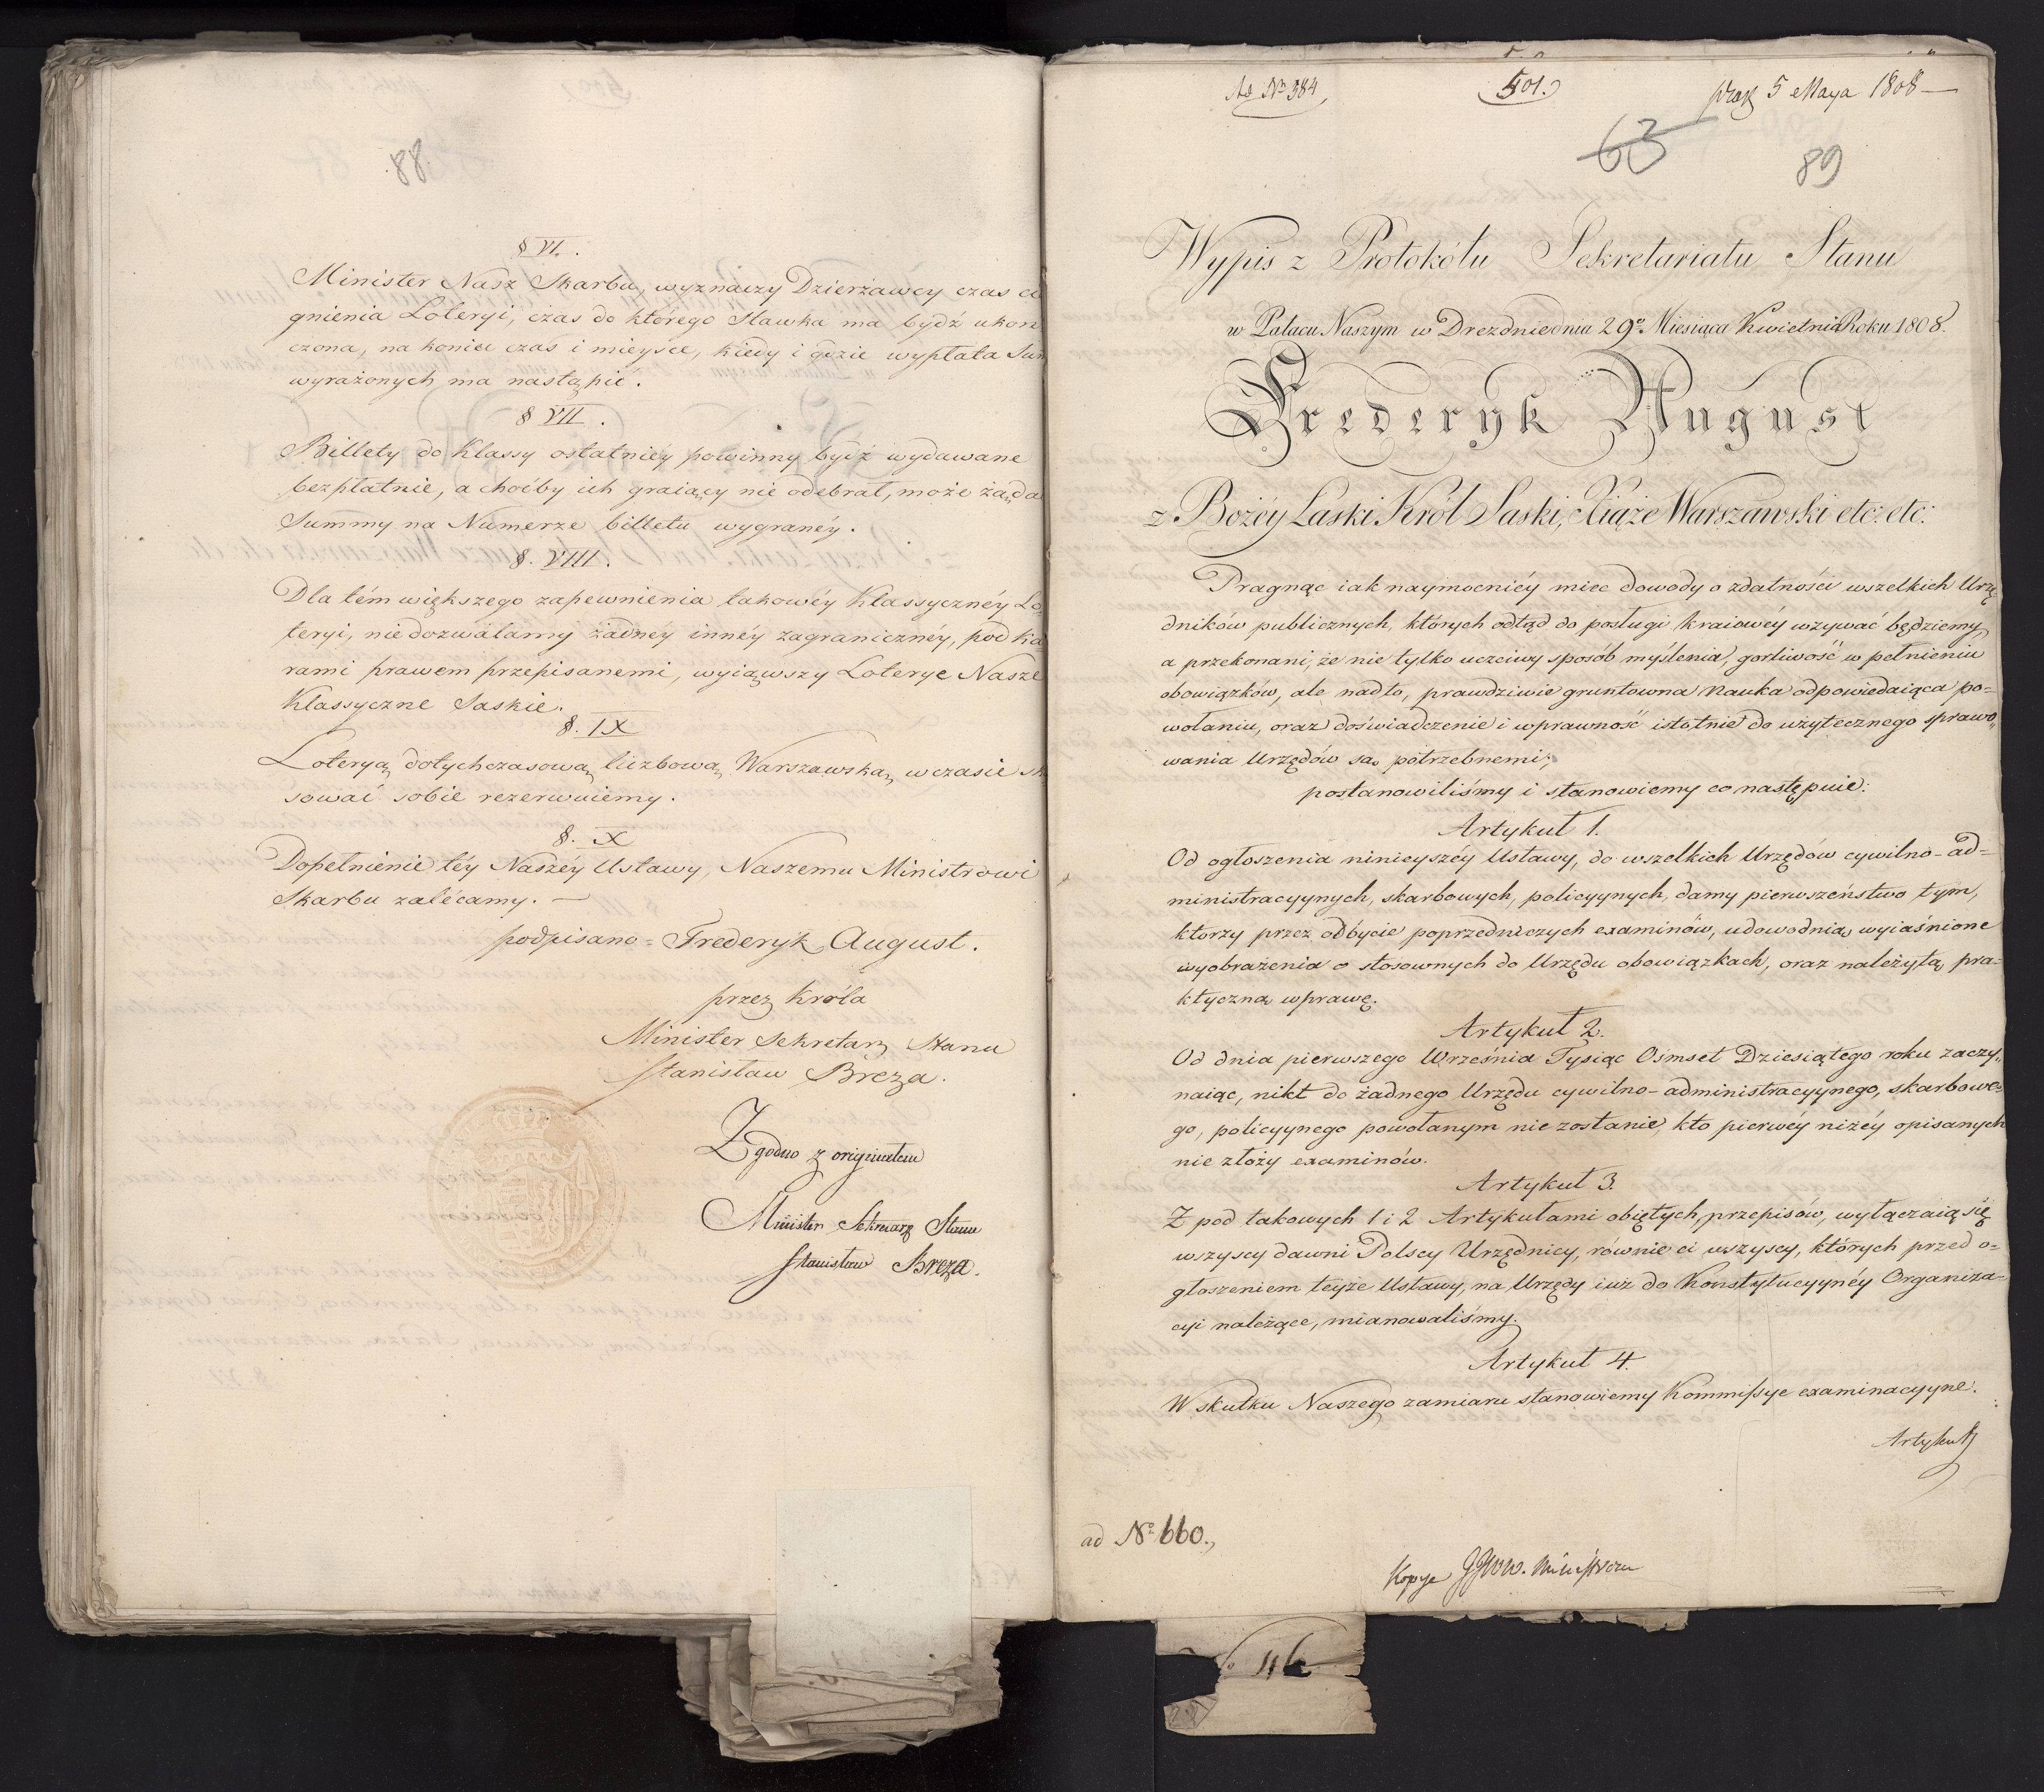 88.
§ VI.
Minister Nasz Skarbu, wyznaczy Dzierżawcy czas cią
gnienia Loteryi, czas do którego Stawka ma bydź ukoń
czona, na koniec czas i mieysce, kiedy i gdzie wypłata Sum
wyrażonych ma nastąpić.
§ VII.
Billety do Klassy ostatniéy powinny bydź wydawane
bezpłatnie, a choćby ich graiący nie odebrał, może żąda
Summy na Numerze billetu wygranéy.
§. VIII.
Dla tém większego zapewnienia takowéy Klassycznéy Lo-
teryi, nie dozwalamy żadnéy innéy zagranicznéy, pod ka
rami prawem przepisanemi, wyiąwszy Loterye Nasze
Klassyczne Saskie.
§. IX
Loteryą dotychczasową liczbową Warszawską, w czasie sk
sować sobie rezerwuiemy.
§. X
Dopełnienie téy Naszéy Ustawy, Naszemu Ministrowi
Skarbu zalécamy. —
podpisano = Frederyk August.
przez Króla
Minister Sekretarz Stanu
Stanisław Breza.
Zgodno z originałem
Minister Sekretarz Stanu
Stanisław Breza.
Ad No 384
501.
praes 5 Maya 1808 —
63
89
Wypis z Protokółu Sekretariatu Stanu
w Pałacu Naszym w Dreznie dnia 29o Miesiąca Kwietnia Roku 1808.
Frederyk August
z Bożéy Łaski Król Saski, Xiąże Warszawski etc: etc:
Pragnąc iak naymocniéy miec dowody o zdatności wszelkich Urzę
dników publicznych, których odtąd do posługi kraiowéy wzywać będziemy,
a przekonani, że nie tylko uczciwy sposób myślenia, gorliwość w pełnieniu
obowiązków, ale nadto, prawdziwie gruntowna Nauka odpowiedaiąca po=
wołaniu, oraz doświadczenie i wprawność istotnie do użytecznego sprawo„
wania Urzędów są potrzebnemi;
postanowiliśmy i stanowiemy co następuie:
Artykuł 1.
Od ogłoszenia ninieyszéy Ustawy, do wszelkich Urzędów cywilno-ad=
ministracyynych, skarbowych, policyynych, damy pierwszeństwo tym,
ktorzy przez odbycie poprzedniczych examinów, udowodnią wyiaśnione
wyobrażenia o stosownych do Urzędu obowiązkach, oraz należytą pra=
ktyczną wprawę.
Artykuł 2.
Od dnia pierwszego Września Tysiąc Ośmset Dziesiątego roku zaczy„
naiąc, nikt do żadnego Urzędu cywilno-administracyynego, skarbowe„
go, policyynego powołanym nie zostanie, kto pierwéy niżéy opisanych
nie złoży examinów.
Artykuł 3.
Z pod takowych 1 i 2 Artykułami obiętych, przepisów, wyłączaią się
wszyscy dawni Polscy Urzędnicy, równie ci wszyscy, których przed o=
głoszeniem teyże Ustawy, na Urzędy iuż do Konstytucyynéy Organiza=
cyi należące, mianowaliśmy.
Artykuł 4.
W skutku Naszego zamiaru stanowiemy Kommissye examinacyyne.
Artykuł
ad No 660.,
Kopye